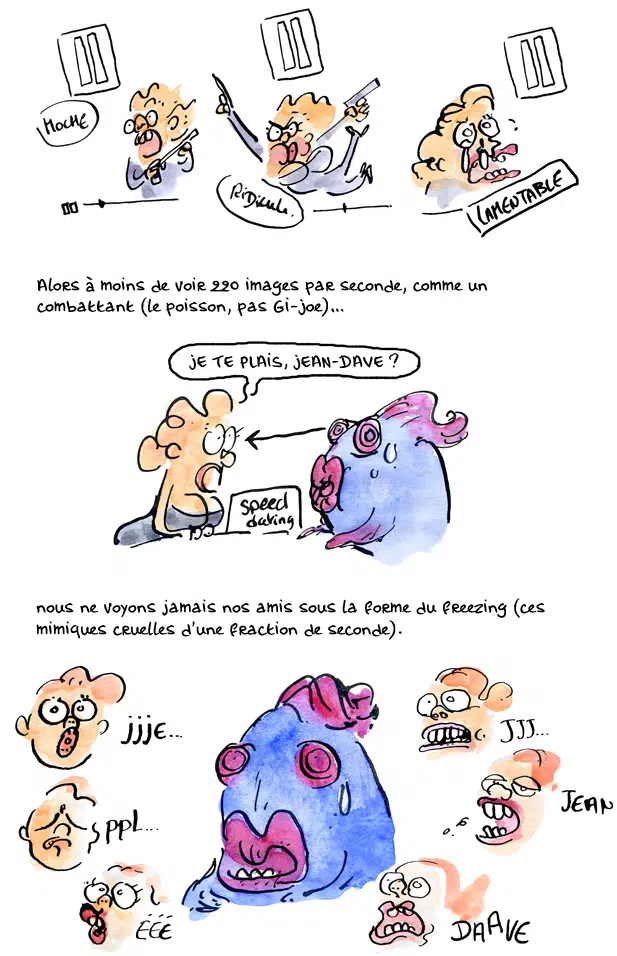 MOCHE
RiDicule.
LAMENTABLE
Alors à moins de voir 220 images par seconde, comme un
combattant (le poisson, pas Gi-joe)...
JE TE PLAIS, JEAN-DAVE ?
speed
dating
nous ne voyons jamais nos amis sous la forme du freezing (ces
mimiques cruelles d'une fraction de seconde).
jjje...
JJJ...
JEAN
ppl...
ÈÈÈ
DAAVE